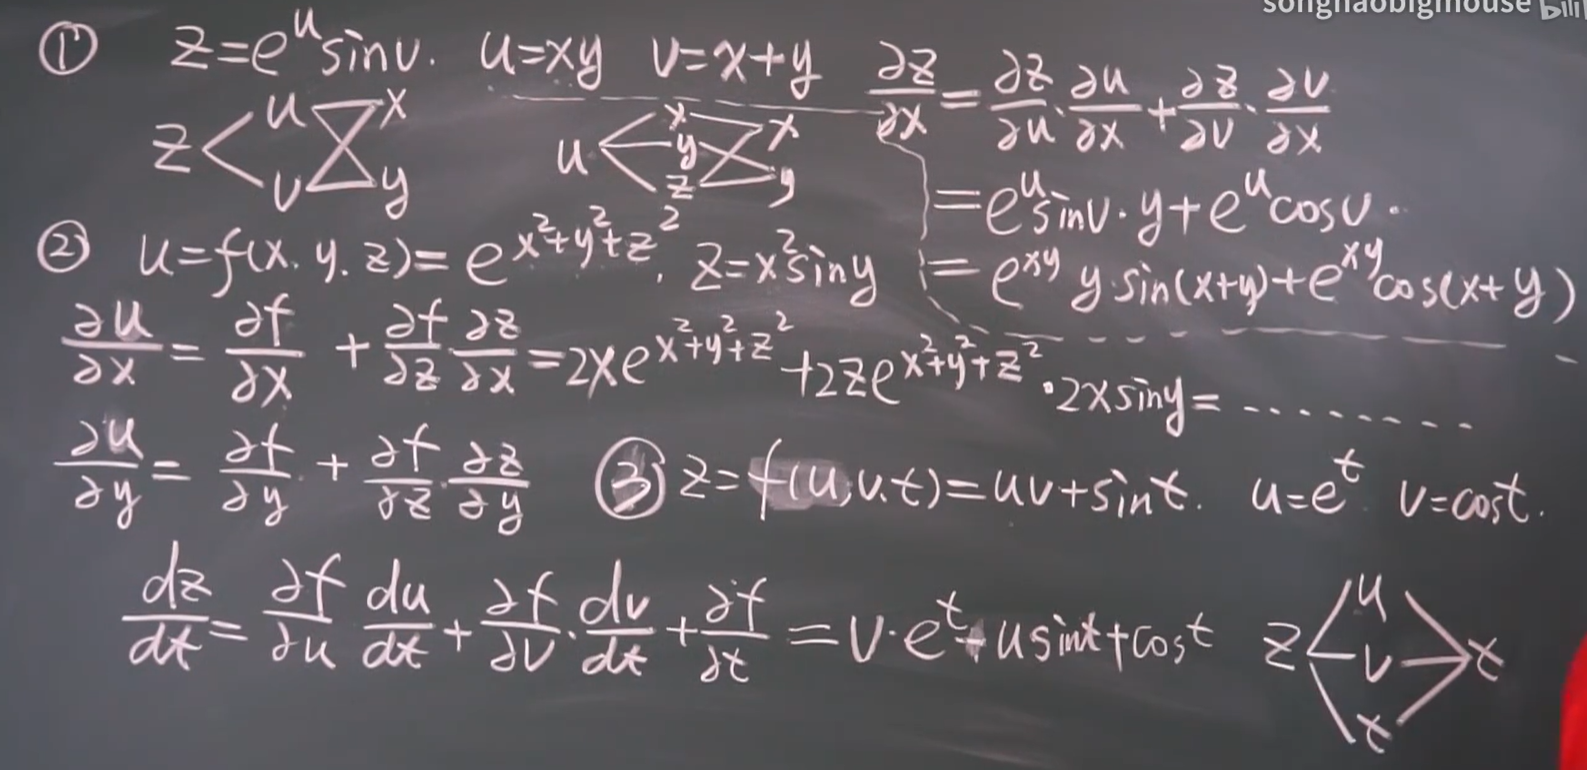 songhaobigmouse bili
① z=e^u sinv. u=xy v=x+y ∂z/∂x=∂z/∂u·∂u/∂x+∂z/∂v·∂v/∂x
z u v x y u x y z x y
=e^u sinv·y+e^u cosv·
=e^{xy} y sin(x+y)+e^{xy}cos(x+y)
② u=f(x.y.z)=e^{x²+y²+z²}, z=x²siny
∂u/∂x=∂f/∂x+∂f/∂z ∂z/∂x=2xe^{x²+y²+z²}+2ze^{x²+y²+z²}·2xsiny=.........
∂u/∂y=∂f/∂y+∂f/∂z·∂z/∂y
③ z=f(u,v.t)=uv+sint. u=e^t v=cost.
dz/dt=∂f/∂u du/dt+∂f/∂v·dv/dt+∂f/∂t=v·e^t-usint+cost
z u v t t